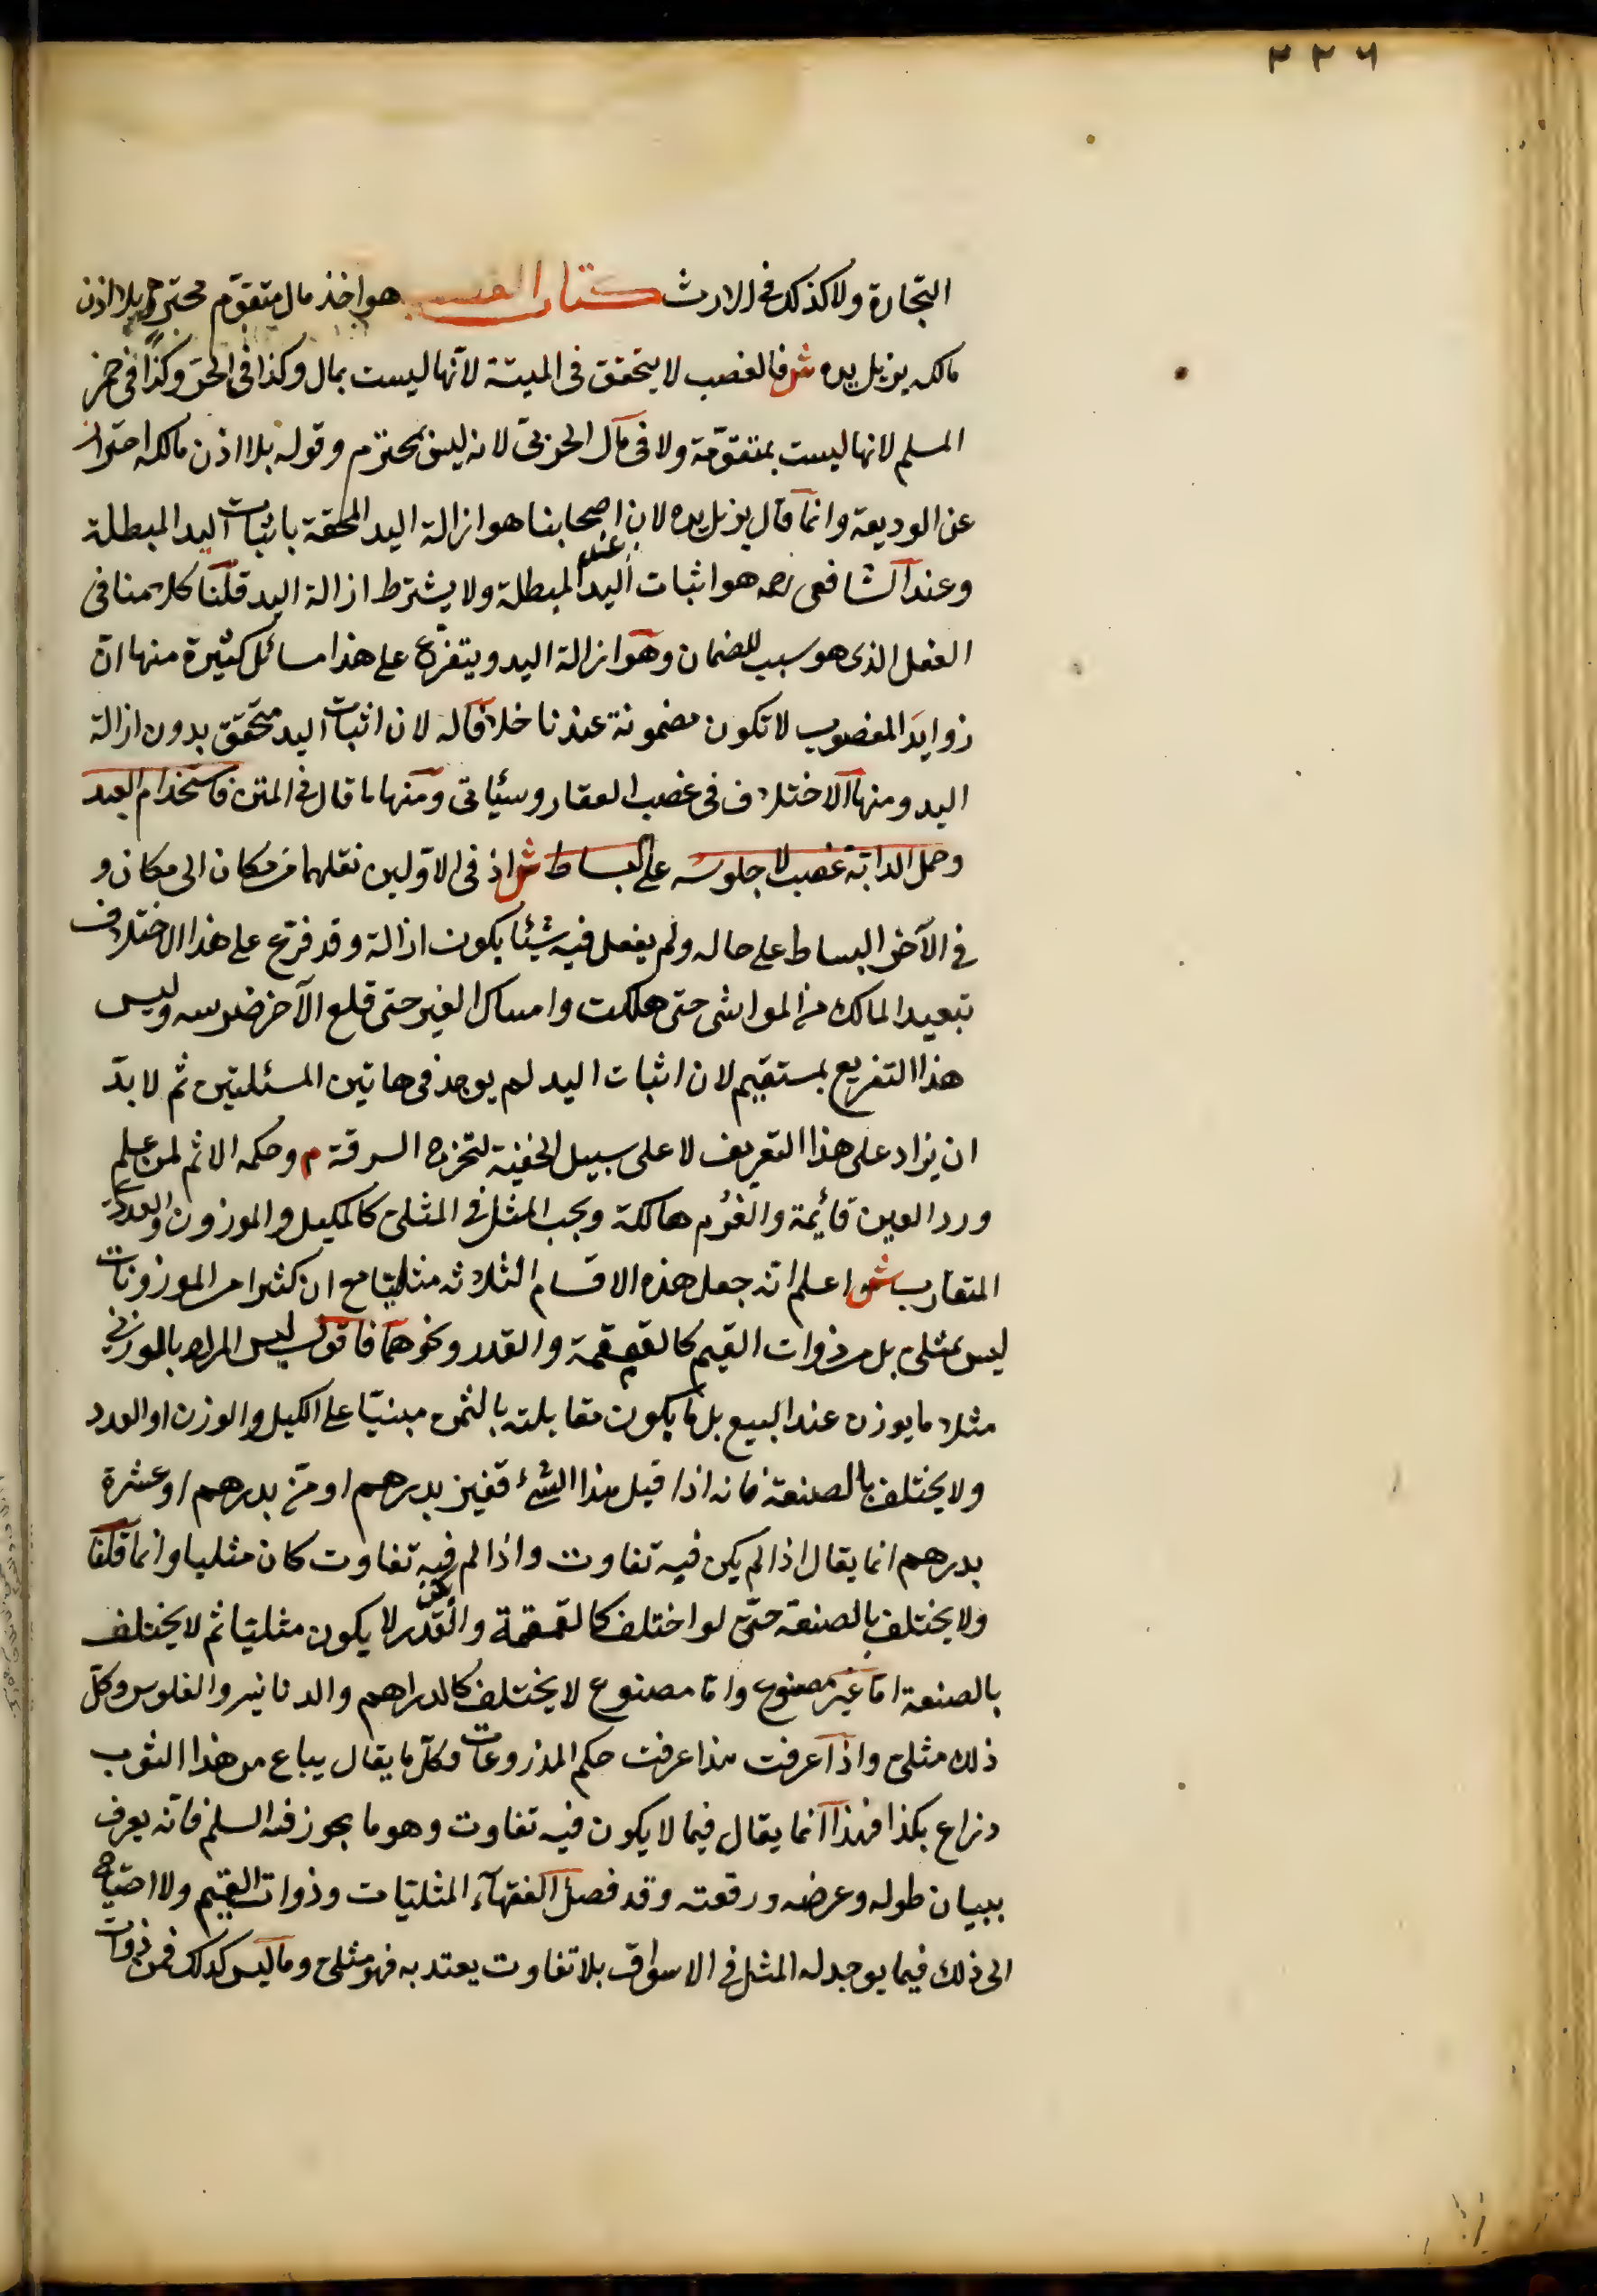 ٣٣٦
التجارة ولا كذلك فى الارث كتاب الغصب هو اخذ مال متقوّم محترم بلا اذن
مالكه يزيل يده ش فالغصب لا يتحقق فى الميتة لانّها ليست بمال وكذا فى الحرّ وكذا فى خمر
المسلم لانها ليست بمتقوّمة ولا فى مال الحربىّ لانه ليس بمحترم وقوله بلا اذن مالكه احتراز
عن الوديعة وانما قال يزيل يده لان اصحابنا هو ازالة اليد المحقة باثبات اليد المبطلة
وعند الشافعى رحمه هو اثبات اليد المبطلة ولا يشترط ازالة اليد قلنا كلامنا فى
الفعل الذى هو سبب للضمان وهو ازالة اليد ويتفرّع على هذا مسائل كثيرة منها انّ
زوايد المغصوب لا تكون مضمونة عندنا خلافا له لان اثبات اليد متحقق بدون ازالة
اليد ومنها الاختلاف فى غصب العقار وسيأتى ومنها ما قال فى المتن فاستخدام العبد
وحمل الدابّة غصب لا جلوسه على البساط ش اذ فى الاوّلين نقلهما من مكان الى مكان و
فى الآخر البساط على حاله ولم يفعل فيه شيئا يكون ازالة وقد فرّع على هذا الاختلاف
تبعيد المالك من المواشى حتى هلكت وامساك الغير حتى قلع الآخر ضرسه وليس
هذا التفريع بمستقيم لان اثبات اليد لم يوجد فى هاتين المسئلتين ثم لا بدّ
ان يزاد على هذا التعريف لا على سبيل الخفية لتخرج السرقة م وحكمه الاثم لمن علم
ورد العين قائمة والغُرم هالكة ويجب المثل فى المثلى كالمكيل والموزون والعددى
المتقارب ش اعلم انّه جعل هذه الاقسام الثلاثه مثليّا مع ان كثيرا من الموزونات
ليس بمثلى بل من ذوات القيم كالقمقمة والقدر ونحوهما فاقول ليس المراد بالموزنى
مثلا ما يوزن عند البيع بل ما يكون مقابلته بالثمن مبنيّا على الكيل والوزن او العدد
ولا يختلف بالصنعة فانه اذا قيل هذا الشئ قفيز بدرهم او منّ بدرهم او عشرة
بدرهم انما يقال اذا لم يكن فيه تفاوت واذا لم يكن فيه تفاوت كان مثليا وانما قلنا
ولا يختلف بالصنعة حتى لو اختلف كالقمقمة والقدر لا يكون مثليّا ثم لا يختلف
بالصنعة امّا غير مصنوع وامّا مصنوع لا يختلف كالدراهم والدنانير والفلوس وكلّ
ذلك مثلى واذا عرفت هذا عرفت حكم المذروعات وكلّ ما يقال يباع من هذا الثوب
ذراع بكذا فهذا انما يقال فيما لا يكون فيه تفاوت وهو ما يجوز فيه السلم فانّه يعرف
ببيان طوله وعرضه ورقعته وقد فصل الفقهاء المثليّات وذوات القيم ولا احتياج
الى ذلك فيما يوجد له المثل فى الاسواق بلا تفاوت يعتد به فهو مثلى وما ليس كذلك فمن ذوات